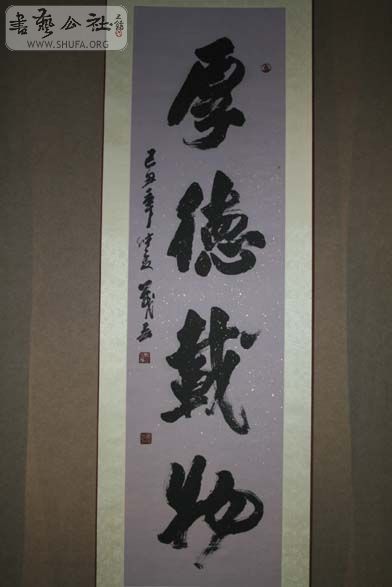 書藝公社
WWW.SHUFA.ORG
厚德載物
己丑年仲夏